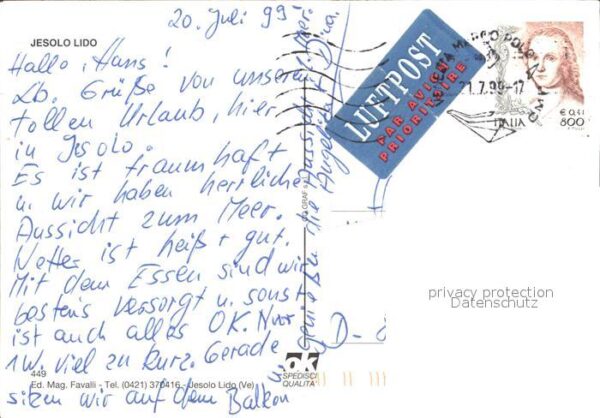 20. Juli 99
JESOLO LIDO
Hallo, Hans!
Lb. Grüße von unserem
tollen Urlaub, hier
in Jesolo.
Es ist traumhaft
u. wir haben herrliche
Aussicht zum Meer.
Wetter ist heiß + gut.
Mit dem Essen sind wir
bestens versorgt u. sonst
ist auch alles OK. Nur
1 W. viel zu kurz. Gerade
sitzen wir auf dem Balkon
u. genießen die Aussicht
Angelica
449
Ed. Mag. Favalli - Tel. (0421) 370416 - Jesolo Lido (Ve)
OK
SPEDISCI
QUALITÀ
LUFTPOST
PAR AVION
PRIORITAIRE
MARCO POLO
21.7.99-17
ITALIA
€ 0,41
800
D-
privacy protection
Datenschutz